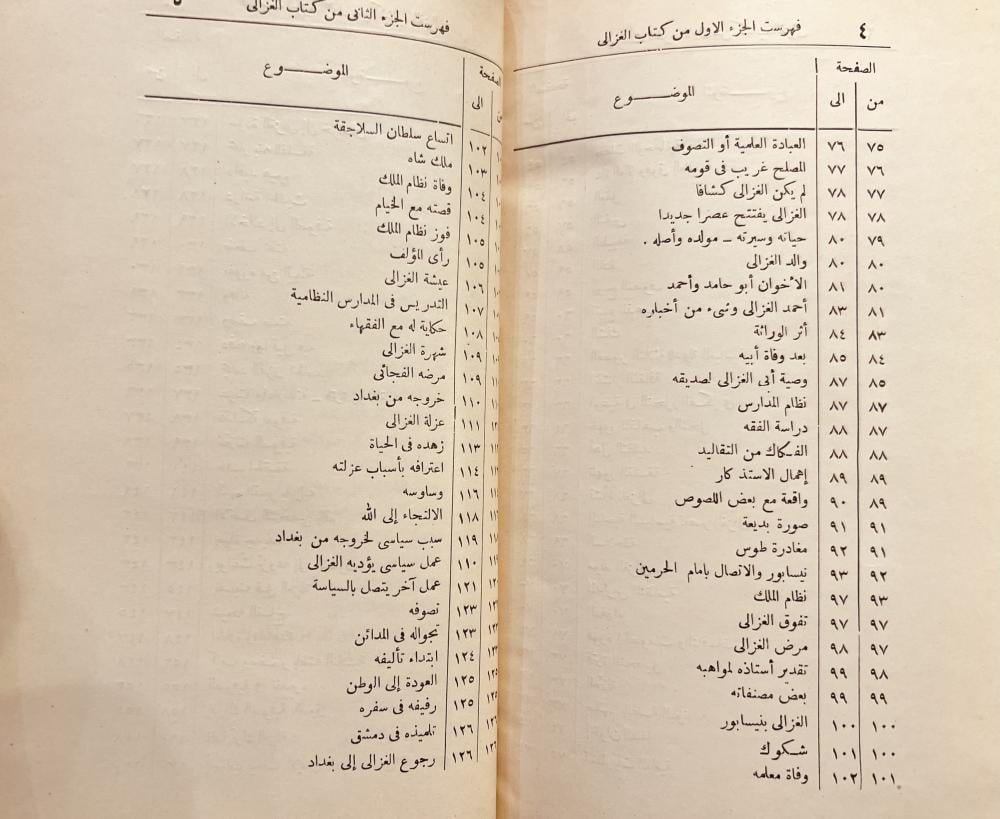 ٤ فهرست الجزء الاول من كتاب الغزالى
الصفحة
من الى الموضـــوع
٧٥ ٧٦ العبادة العلمية أو التصوف
٧٦ ٧٧ المصلح غريب فى قومه
٧٧ ٧٨ لم يكن الغزالى كشافا
٧٨ ٧٨ الغزالى يفتتح عصرا جديدا
٧٩ ٨٠ حياته وسيرته ــ مولده وأصله .
٨٠ ٨٠ والد الغزالى
٨٠ ٨١ الأخوان أبو حامد وأحمد
٨١ ٨٣ أحمد الغزالى وشىء من أخباره
٨٣ ٨٤ أثر الوراثة
٨٤ ٨٥ بعد وفاة أبيه
٨٥ ٨٧ وصية أبى الغزالى لصديقه
٨٧ ٨٧ نظام المدارس
٨٧ ٨٨ دراسة الفقه
٨٨ ٨٨ الفكاك من التقاليد
٨٩ ٨٩ إهمال الاستذكار
٨٩ ٩٠ واقعة مع بعض اللصوص
٩١ ٩١ صورة بديعة
٩١ ٩٢ مغادرة طوس
٩٢ ٩٣ نيسابور والاتصال بامام الحرمين
٩٣ ٩٧ نظام الملك
٩٧ ٩٧ تفوق الغزالى
٩٧ ٩٨ مرض الغزالى
٩٨ ٩٩ تقدير أستاذه لمواهبه
٩٩ ٩٩ بعض مصنفاته
١٠٠ ١٠٠ الغزالى بنيسابور
١٠٠ ١٠١ شكوك
١٠١ ١٠٢ وفاة معلمه
فهرست الجزء الثانى من كتاب الغزالى
الصفحة
الى الموضـــوع
١٠٢ اتساع سلطان السلاجقة
١٠٣ ملك شاه
١٠٤ وفاة نظام الملك
١٠٤ قصته مع الخيام
١٠٥ فوز نظام الملك
١٠٥ رأى المؤلف
١٠٦ عيشة الغزالى
١٠٧ التدريس فى المدارس النظامية
١٠٨ حكاية له مع الفقهاء
١٠٩ شهرة الغزالى
١٠٩ مرضه الفجائى
١١٠ خروجه من بغداد
١١١ عزلة الغزالى
١١٣ زهده فى الحياة
١١٤ اعترافه بأسباب عزلته
١١٦ وساوسه
١١٨ الالتجاء إلى الله
١١٩ سبب سياسى لخروجه من بغداد
١١٠ عمل سياسى يؤديه الغزالى
١٢١ عمل آخر يتصل بالسياسة
١٢٣ تصوفه
١٢٣ تجواله فى المدائن
١٢٤ ابتداء تأليفه
١٢٥ العودة إلى الوطن
١٢٥ رفيقه فى سفره
١٢٦ تلميذه فى دمشق
١٢٦ رجوع الغزالى إلى بغداد